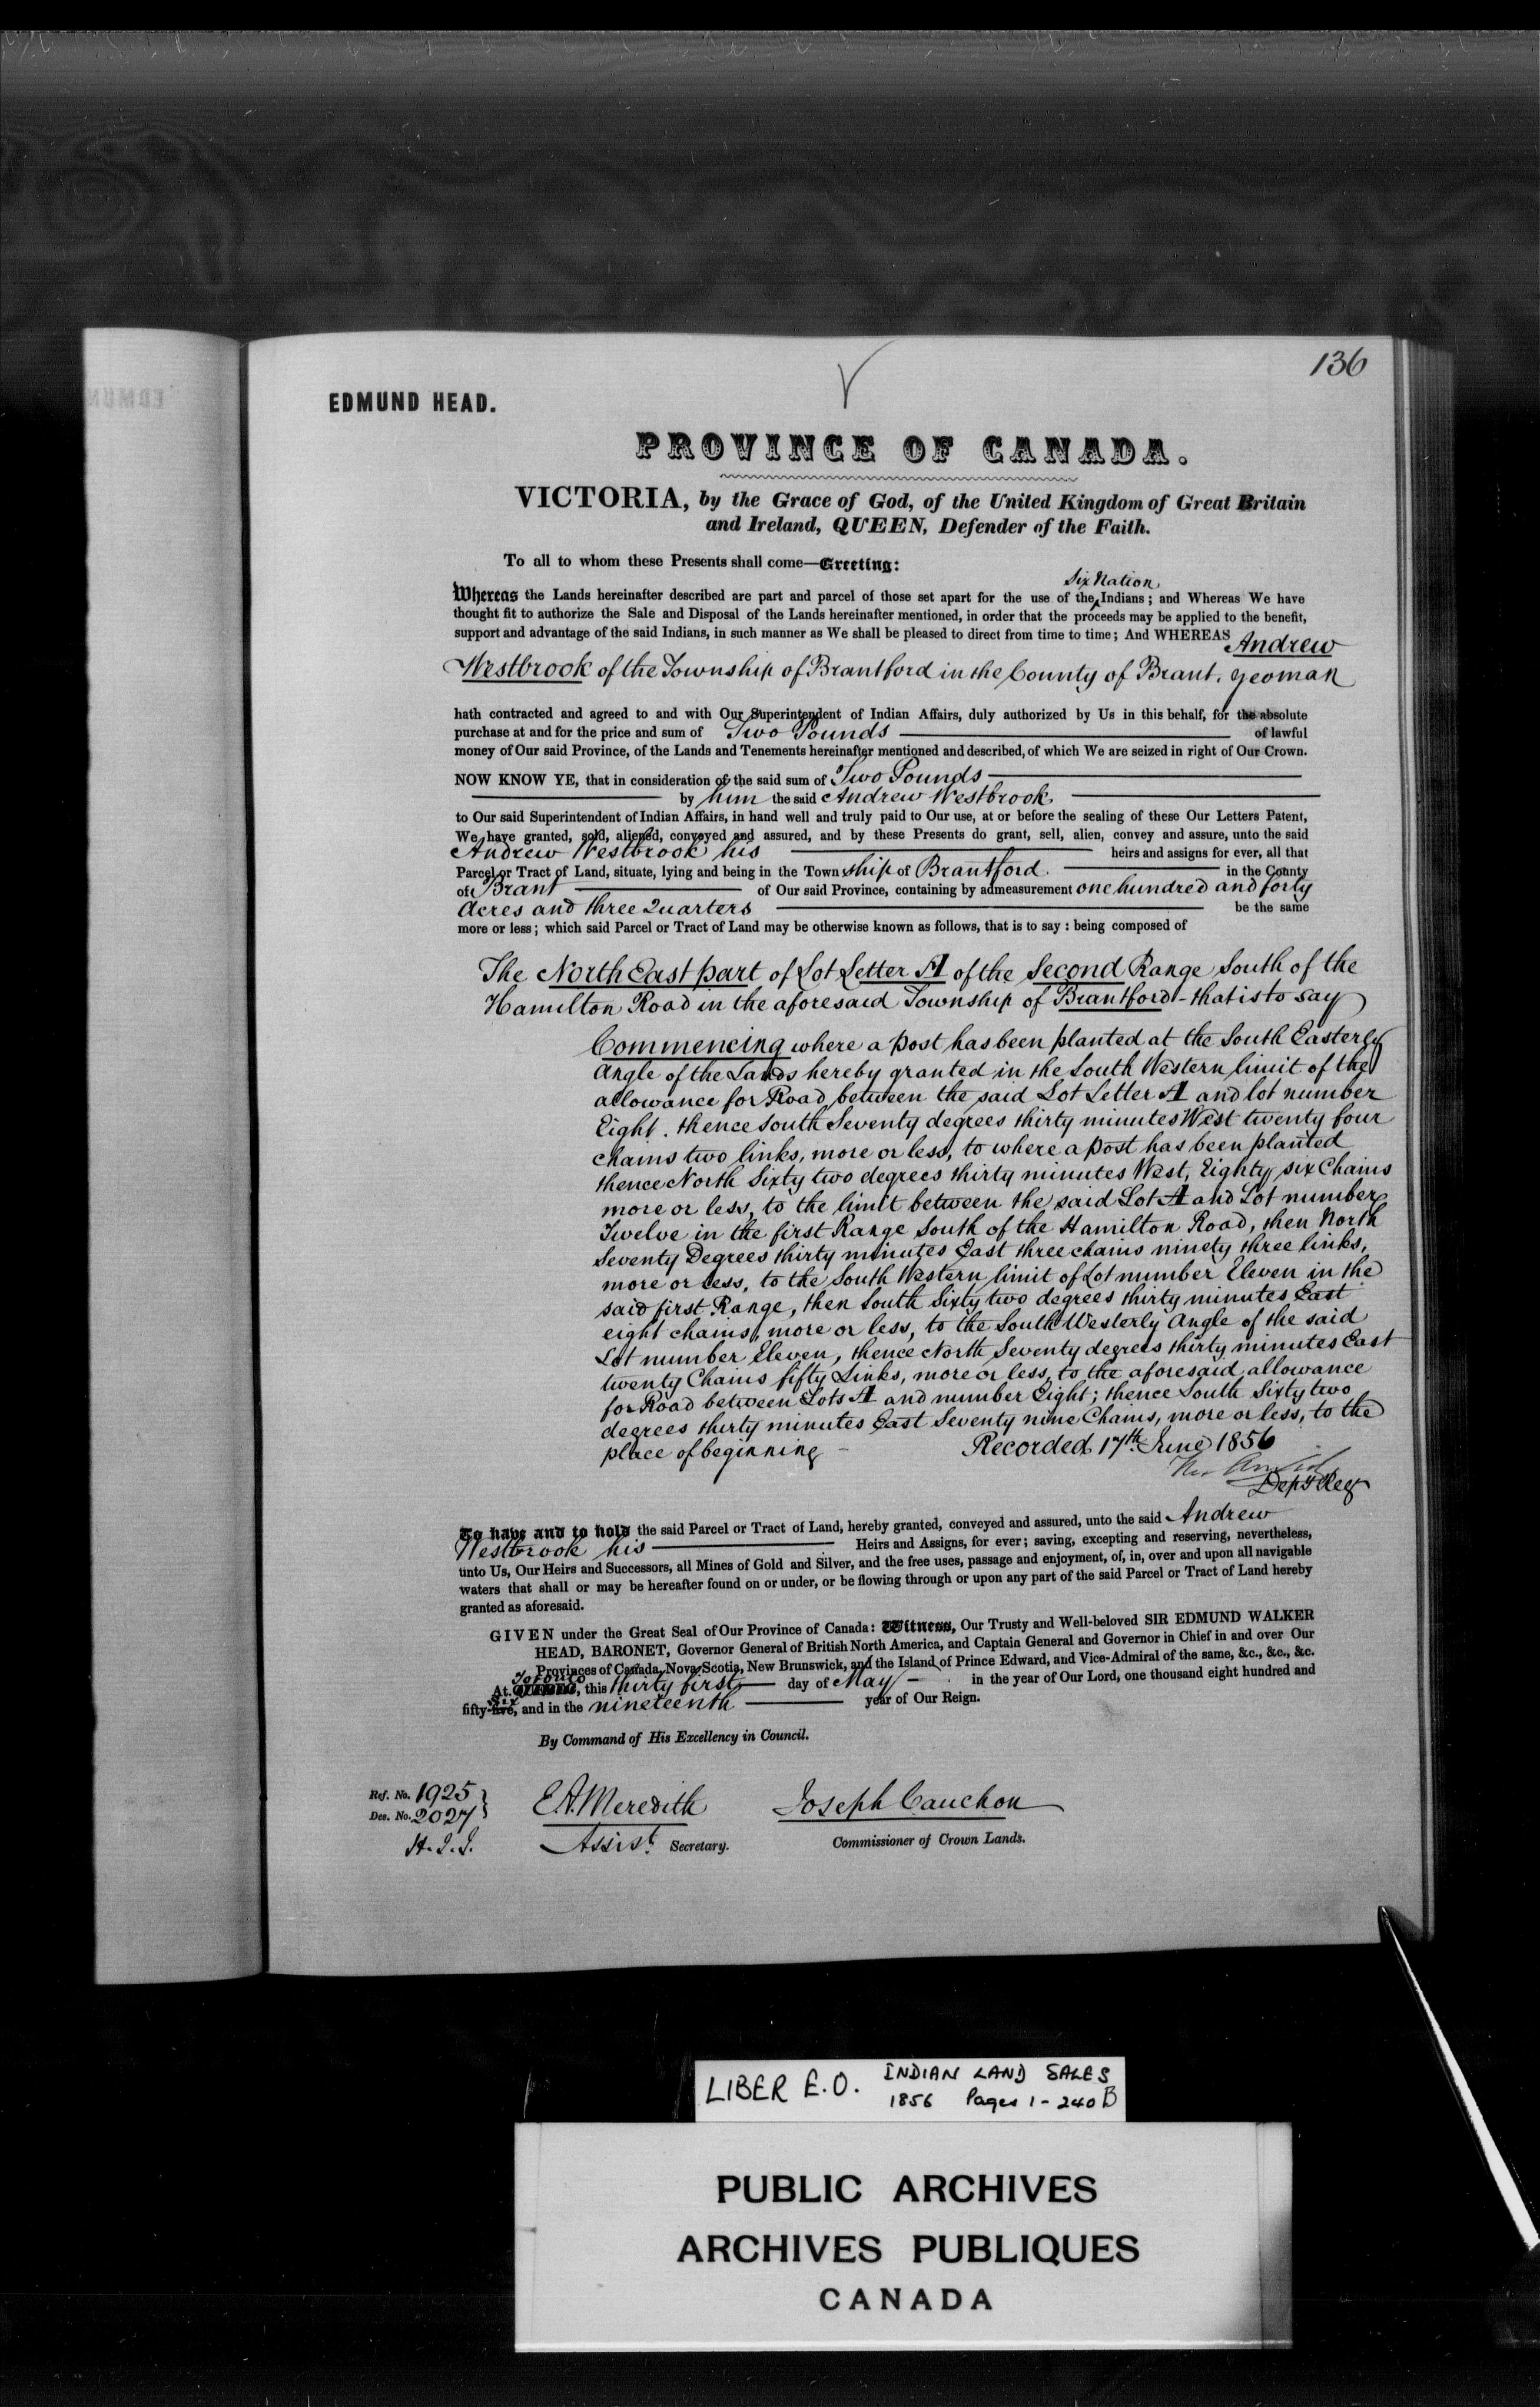 136
EDMUND HEAD.
PROVINCE OF CANADA.
VICTORIA, by the Grace of God, of the United Kingdom of Great Britain
and Ireland, QUEEN, Defender of the Faith.
To all to whom these Presents shall come—Greeting:
Six Nation
Whereas the Lands hereinafter described are part and parcel of those set apart for the use of the Indians; and Whereas We have
thought fit to authorize the Sale and Disposal of the Lands hereinafter mentioned, in order that the proceeds may be applied to the benefit,
support and advantage of the said Indians, in such manner as We shall be pleased to direct from time to time; And WHEREAS Andrew
Westbrook of the Township of Brantford in the County of Brant, yeoman
hath contracted and agreed to and with Our Superintendent of Indian Affairs, duly authorized by Us in this behalf, for the absolute
purchase at and for the price and sum of Two Pounds of lawful
money of Our said Province, of the Lands and Tenements hereinafter mentioned and described, of which We are seized in right of Our Crown.
NOW KNOW YE, that in consideration of the said sum of Two Pounds
by him the said Andrew Westbrook
to Our said Superintendent of Indian Affairs, in hand well and truly paid to Our use, at or before the sealing of these Our Letters Patent,
We have granted, sold, aliened, conveyed and assured, and by these Presents do grant, sell, alien, convey and assure, unto the said
Andrew Westbrook his heirs and assigns for ever, all that
Parcel or Tract of Land, situate, lying and being in the Town ship of Brantford in the County
of Brant of Our said Province, containing by admeasurement one hundred and forty
Acres and three Quarters be the same
more or less; which said Parcel or Tract of Land may be otherwise known as follows, that is to say: being composed of
The North East part of Lot Letter A of the Second Range South of the
Hamilton Road in the aforesaid Township of Brantford - that is to say
Commencing where a post has been planted at the South Easterly
Angle of the Lands hereby granted in the South Western limit of the
allowance for Road between the said Lot Letter A and lot number
Eight. thence South Seventy degrees thirty minutes West twenty four
chains two links, more or less, to where a post has been planted
thence North Sixty two degrees thirty minutes West, Eighty six Chains
more or less, to the limit between the said Lot A and Lot number
Twelve in the first Range South of the Hamilton Road, then North
Seventy Degrees thirty minutes East three chains ninety three links,
more or less, to the South Western limit of Lot number Eleven in the
said first Range, then South Sixty two degrees thirty minutes East
eight chains, more or less, to the South Westerly Angle of the said
Lot number Eleven, thence North Seventy degrees thirty minutes East
twenty Chains fifty Links, more or less, to the aforesaid allowance
for Road between Lots A and number Eight; thence South Sixty two
degrees thirty minutes East Seventy nine Chains, more or less, to the
place of beginning - Recorded 17th June 1856
Depy Reg
To have and to hold the said Parcel or Tract of Land, hereby granted, conveyed and assured, unto the said Andrew
Westbrook his Heirs and Assigns, for ever; saving, excepting and reserving, nevertheless,
unto Us, Our Heirs and Successors, all Mines of Gold and Silver, and the free uses, passage and enjoyment, of, in, over and upon all navigable
waters that shall or may be hereafter found on or under, or be flowing through or upon any part of the said Parcel or Tract of Land hereby
granted as aforesaid.
GIVEN under the Great Seal of Our Province of Canada: Witness, Our Trusty and Well-beloved SIR EDMUND WALKER
HEAD, BARONET, Governor General of British North America, and Captain General and Governor in Chief in and over Our
Provinces of Canada, Nova Scotia, New Brunswick, and the Island of Prince Edward, and Vice-Admiral of the same, &c., &c., &c.
Toronto
At QUEBEC, this thirty first day of May in the year of Our Lord, one thousand eight hundred and
six
fifty-five, and in the nineteenth year of Our Reign.
By Command of His Excellency in Council.
Ref. No. 1925
Des. No. 2027
E.A. Meredith
Joseph Cauchon
Assist. Secretary.
Commissioner of Crown Lands.
LIBER E.O. INDIAN LAND SALES
1856 Pages 1 - 240 B
PUBLIC ARCHIVES
ARCHIVES PUBLIQUES
CANADA